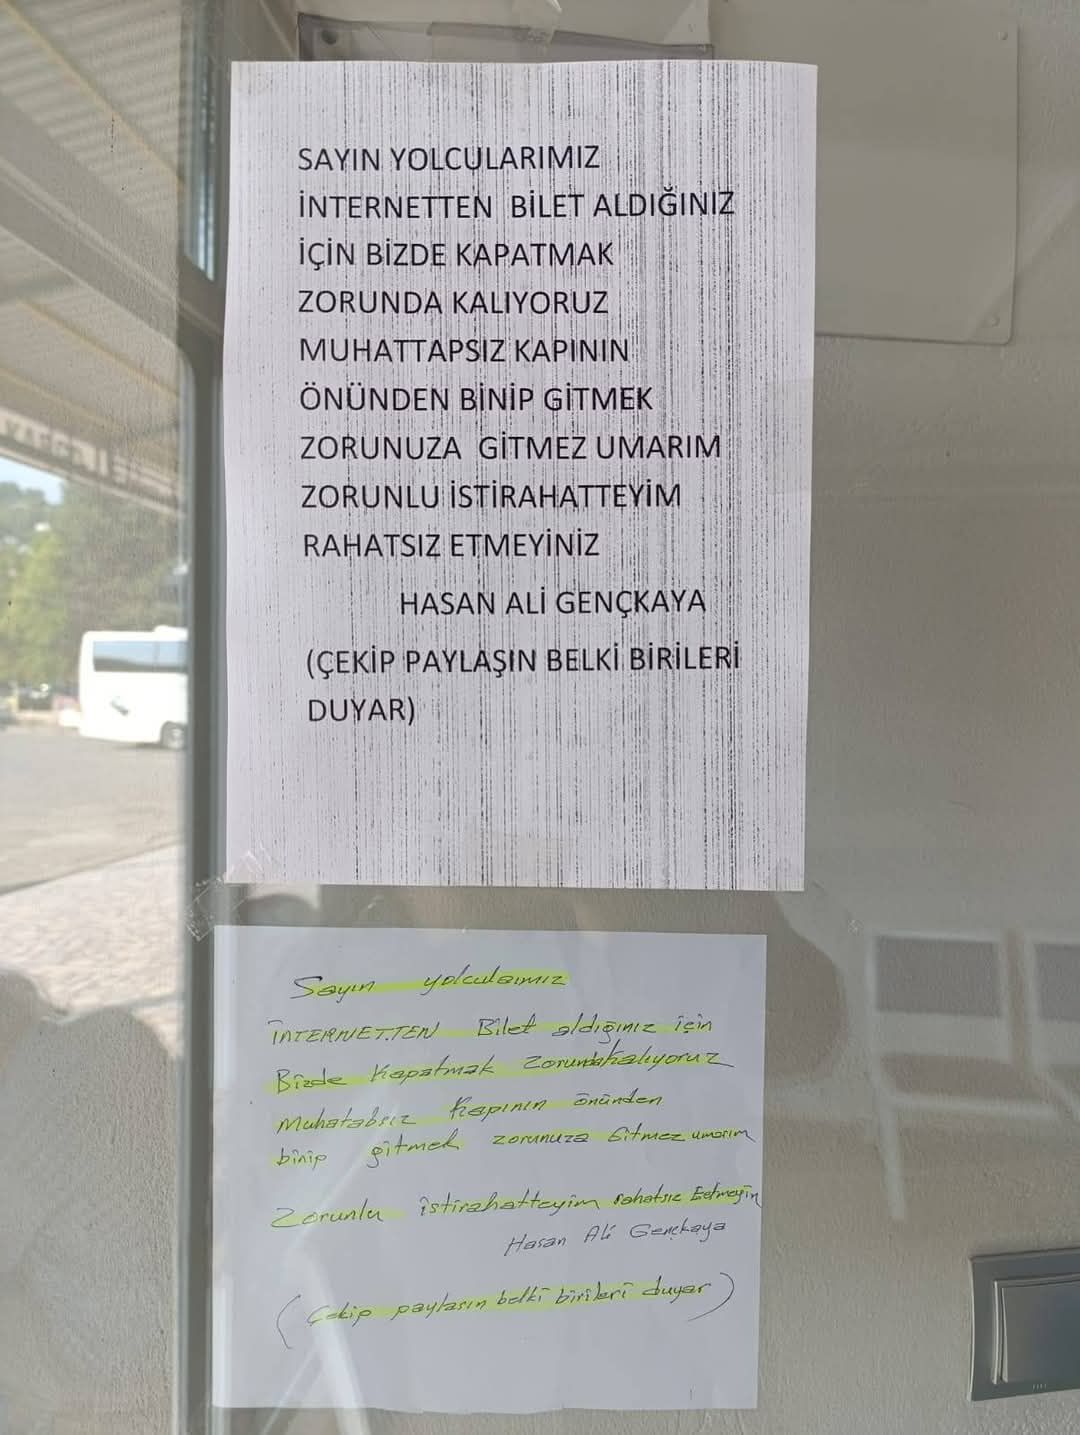 SAYIN YOLCULARIMIZ
İNTERNETTEN BİLET ALDIĞINIZ
İÇİN BİZDE KAPATMAK
ZORUNDA KALIYORUZ
MUHATTAPSIZ KAPININ
ÖNÜNDEN BİNİP GİTMEK
ZORUNUZA GİTMEZ UMARIM
ZORUNLU İSTİRAHATTEYİM
RAHATSIZ ETMEYİNİZ
HASAN ALİ GENÇKAYA
(ÇEKİP PAYLAŞIN BELKİ BİRİLERİ
DUYAR)
Sayın yolcularımız
İNTERNETTEN Bilet aldığınız için
Bizde Kapatmak Zorunda Kalıyoruz
Muhatabsız Kapının önünden
binip gitmek zorunuza Gitmez umarım
Zorunlu istirahatteyim rahatsız Etmeyin
Hasan Ali Gençkaya
(Çekip paylasın belki birileri duyar)